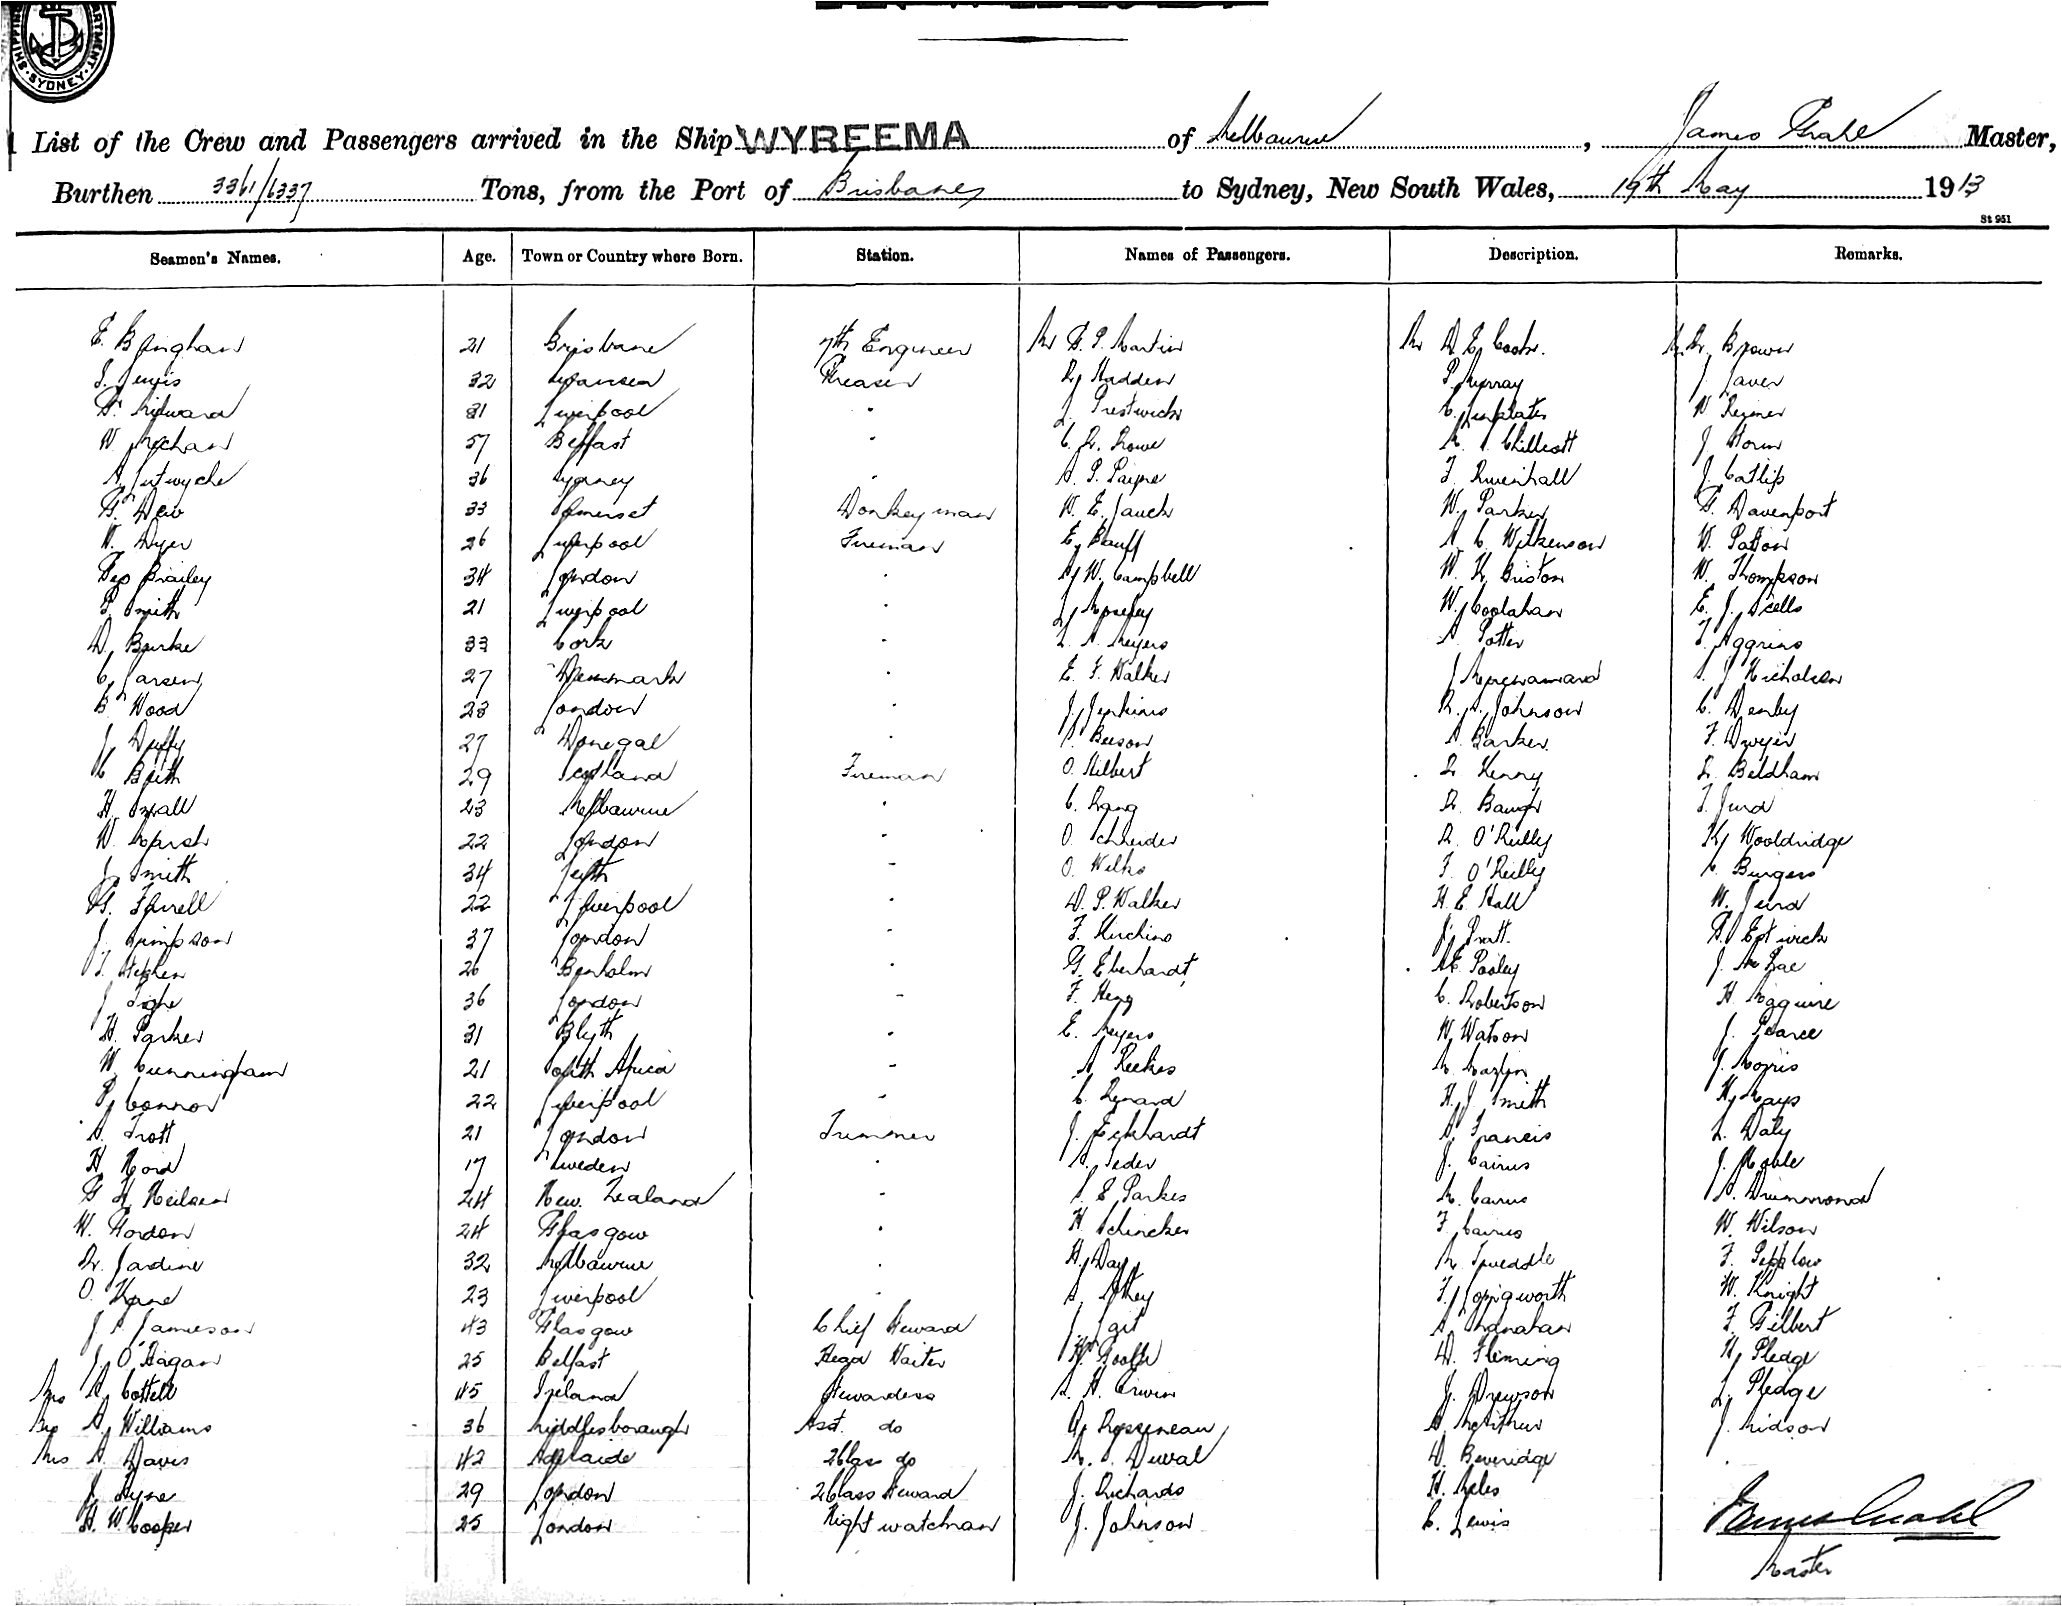 SHIPPING DEPARTMENT. SYDNEY.
List of the Crew and Passengers arrived in the Ship WYREEMA of Melbourne, James Master,
Burthen 3361/6337 Tons, from the Port of Brisbane to Sydney, New South Wales, 19th May 1913
St 951
Seamen's Names. Age. Town or Country where Born. Station. Names of Passengers. Description. Remarks.
E. Bingham 21 Brisbane 7th Engineer Mr G. P. Martin Mr A E Cook. Mr Brown
J. Lewis 32 Swansea Greaser R Hadden P. Murray J.
G. Milward 31 Liverpool " J. Prestwich C. W
W. Mechan 57 Belfast " C. R. Rowe Chillcott J Storm
A. Lutwyche 36 Sydney " A. P. Payne F. Rivenhall J. Catlip
G. Dew 33 Somerset Donkeyman W. E. Jauch W. Parker G. Davenport
W. Dyer 26 Liverpool Fireman E. Banff A C Wilkenson W. Patton
Geo Brailey 34 London " A W. Campbell W. H. Briston W. Thompson
P. Smith 21 Liverpool " L Moseley W. Coolahan E. J. Scells
D. Burke 33 Cork " L. A. Meyers A. Potter T. Aggrins
C. Larsen 27 Denmark " E. F. Walker J S. J Nicholson
B. Wood 23 London " J. Jenkins R. A. Johnson C. Denby
J. Duffy 27 Donegal " S. Beeson A. Barker. F. Dwyer
C Beith 29 Scotland Fireman O. Hilbert R Kenny R. Beldham
H. Small 23 Melbourne " C. Rang R. Baugh T. Jurd
W. Marsh 22 London " O. Schneider R. O'Reilly H Wooldridge
J. Smith 34 Leith " O. Wilks F. O'Reilly C. Burgess
G. Farrell 22 Liverpool " D. P. Walker H. E. Hall W. Jurd
J. Simpson 37 London " F. Huchins J. Pratt. G. Estwick
T. Stephen 26 Benholm " G. Eberhardt, A E Pooley J. McRae
J Tighe 36 London " F. Heng C. Robertson H Maguire
H. Parker 31 Blyth " E. Meyers W. Watson J. Pearce
W. Cunningham 21 South Africa " A Reekes M. J. Morris
P. Connor 22 Liverpool " C. Renard H. J. Smith H. Mays
A. Trott 21 London Trimmer J. Eckhardt A. Francis L. Daly
H. Nord 17 Sweden " A. Seder J. Cairns J. Noble
G H. Neilsen 24 New Zealand " S. E Parkes M. Cairns A. Drummond
W. Gordon 24 Glasgow " H Schincker F. Cairns W. Wilson
R. Jardine 32 Melbourne " H. Day M. Tweddle F. Pepplow
O. Kane 23 Liverpool " A. Athey F. Longworth W. Knight
J. S. Jamieson 43 Glasgow Chief Steward J. Tait A. Shanahan F. Gilbert
J. O'Hagan 25 Belfast Head Waiter D. Fleming H. Pledge
Mrs A. Cottell 45 Ireland Stewardess A. H. Erwin J. Drewson L. Pledge
A. Williams 36 Middlesborough Asst. do A. McArthur J. Midson
Mrs A. Davis 42 Adelaide 2 Class do Duval D. Beveridge
J. Hyne 29 London 2 Class Steward J. Richards H. Miles
H. W Cooper 25 London Night watchman J. Johnson C. Lewis
James
Master